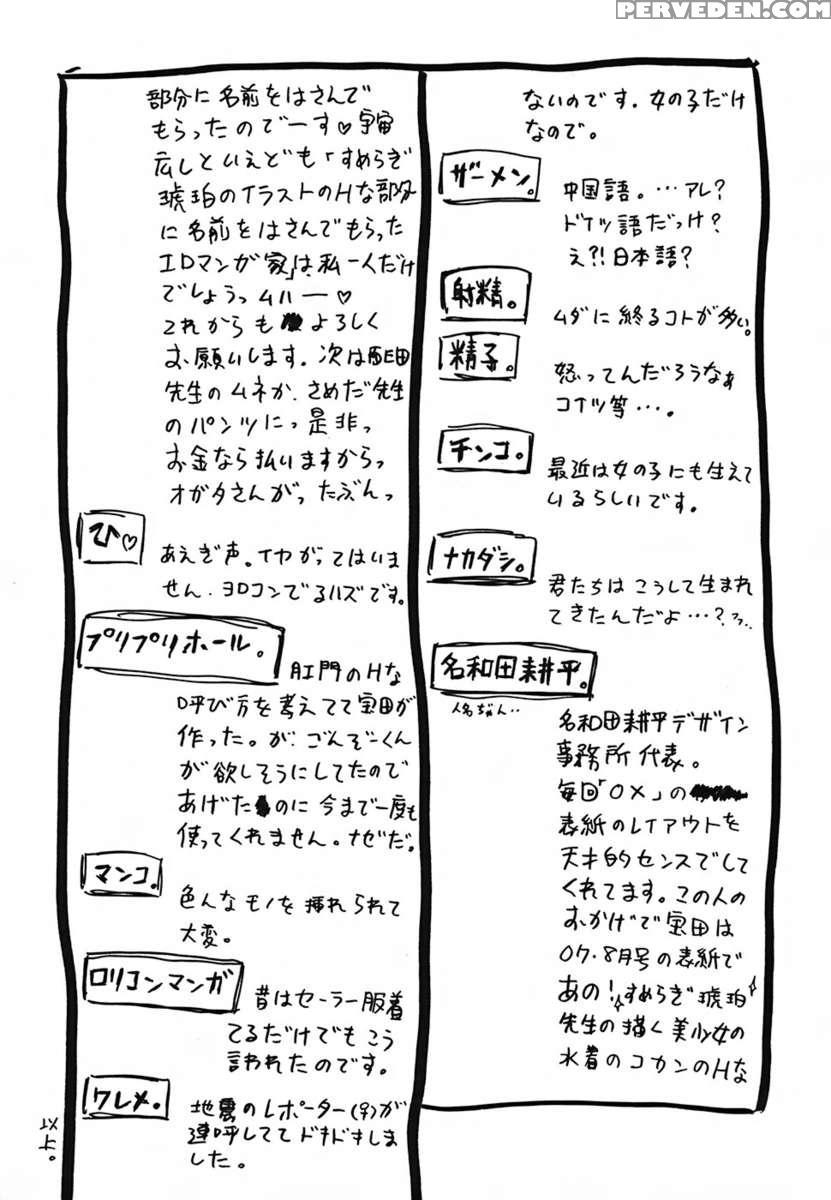 PERVEDEN.COM
ないのです。女の子だけ
なので。
ザーメン。
中国語。…アレ?
ドイツ語だっけ?
え?!日本語?
射精。
ムダに終るコトが多い。
精子。
怒ってんだろうなぁ
コイツ等…。
チンコ。
最近は女の子にも生えて
いるらしいです。
ナカダシ。
君たちはこうして生まれ
てきたんだよ…?
名和田耕平。
人名じゃん…
名和田耕平デザイン
事務所代表。
毎回「OX」の
表紙のレイアウトを
天才的センスでして
くれてます。この人の
おかげで宝田は
07.8月号の表紙で
あの!すめらぎ琥珀
先生の描く美少女の
水着のコカンのHな
部分に名前をはさんで
もらったのでーす♡宇宙
広しといえども「すめらぎ
琥珀のイラストのHな部分
に名前をはさんでもらった
エロマンガ家」は私一人だけ
でしょうっムハー♡
これからもよろしく
お願いします。次は
先生のムネか、さめだ先生
のパンツにっ是非っ
お金なら払いますからっ
オガタさんがったぶんっ
ひ♡
あえぎ声。イヤがってはいま
せん。ヨロコンでるハズです。
プリプリホール。
肛門のHな
呼び方を考えてて宝田が
作った。が、ごんぞーくん
が欲しそうにしてたので
あげたのに今まで一度も
使ってくれません。ナゼだ。
マンコ。
色んなモノを挿れられて
大変。
ロリコンマンガ
昔はセーラー服着
てるだけでもこう
言われたのです。
ワレメ。
地震のレポーター(♀)が
連呼しててドキドキしま
した。
以上。